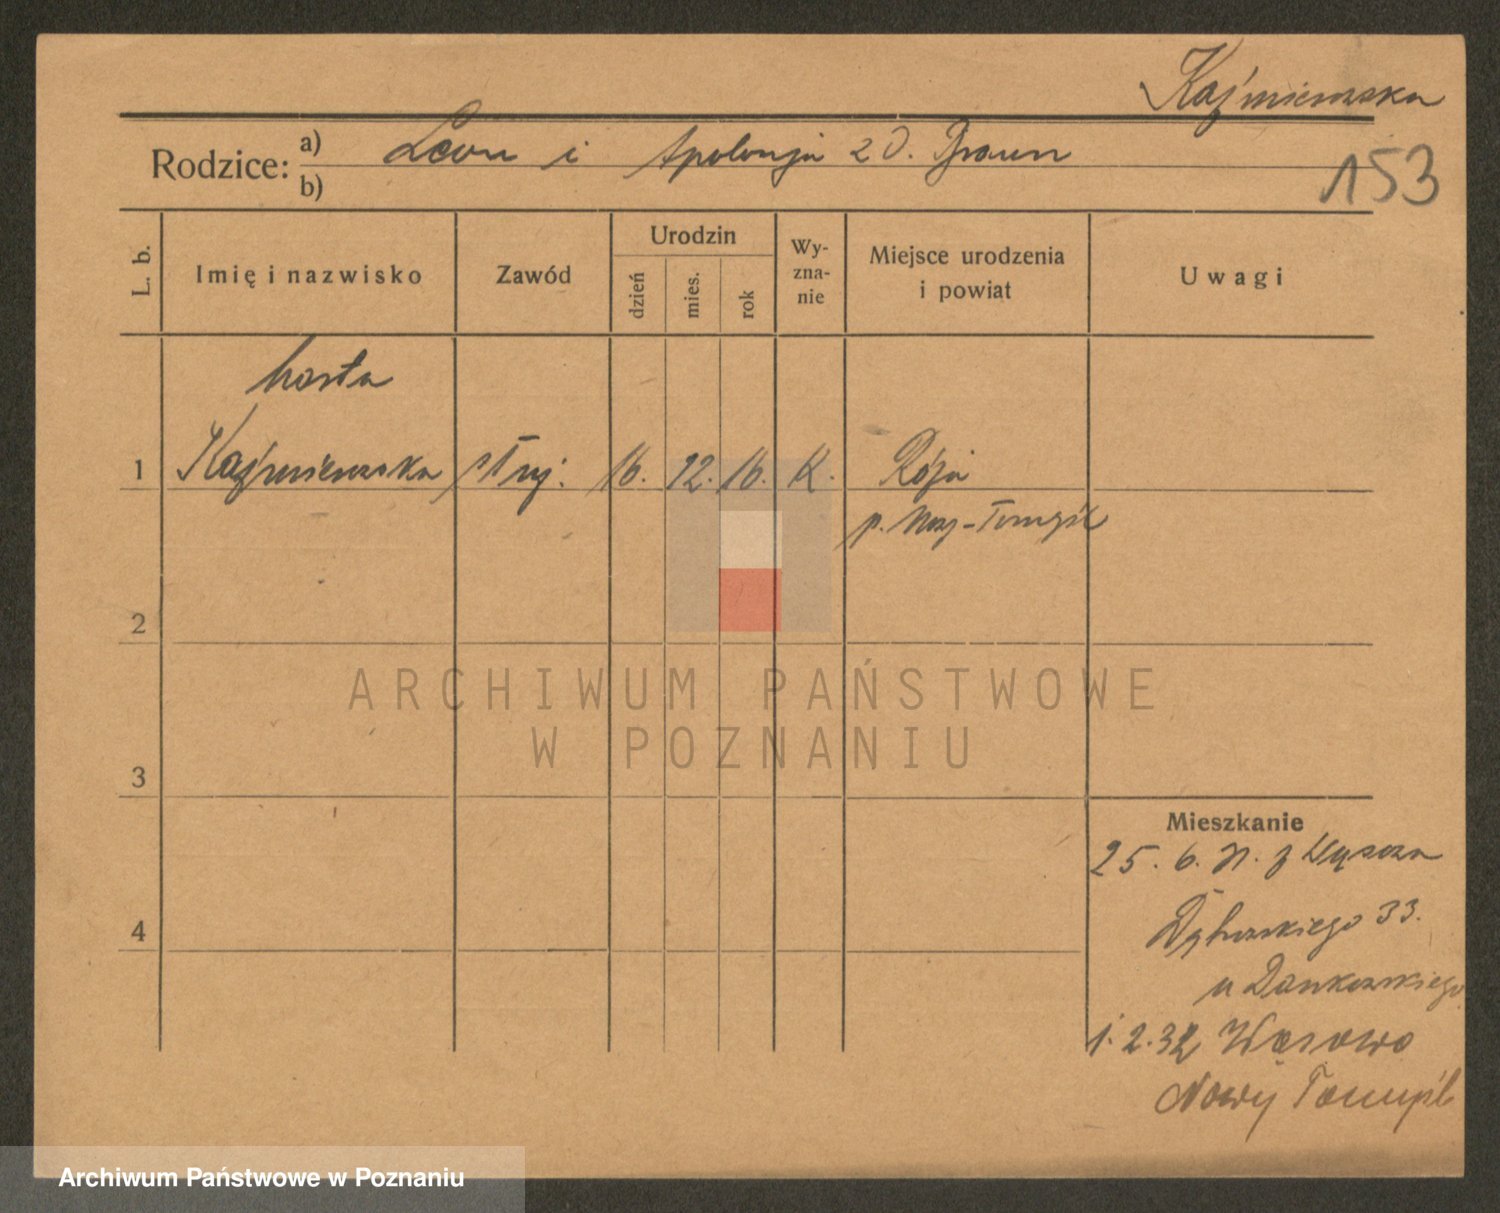 Kaźmierska
Rodzice: a) Leon i Apolonja z D. Braun
b)
153
L. b.
Imię i nazwisko
Zawód
Urodzin
dzień
mies.
rok
Wy-
zna-
nie
Miejsce urodzenia
i powiat
Uwagi
Marta
1 Kaźmierska służ. 16. 12. 16. K. Róża
p. Nowy-Tomyśl
2
3
4
Mieszkanie
25. 6. 31. z
Dąbrowskiego 33.
u Dankowskiego
1. 2. 32 Wąsowo
Nowy Tomyśl
ARCHIWUM PAŃSTWOWE
W POZNANIU
Archiwum Państwowe w Poznaniu